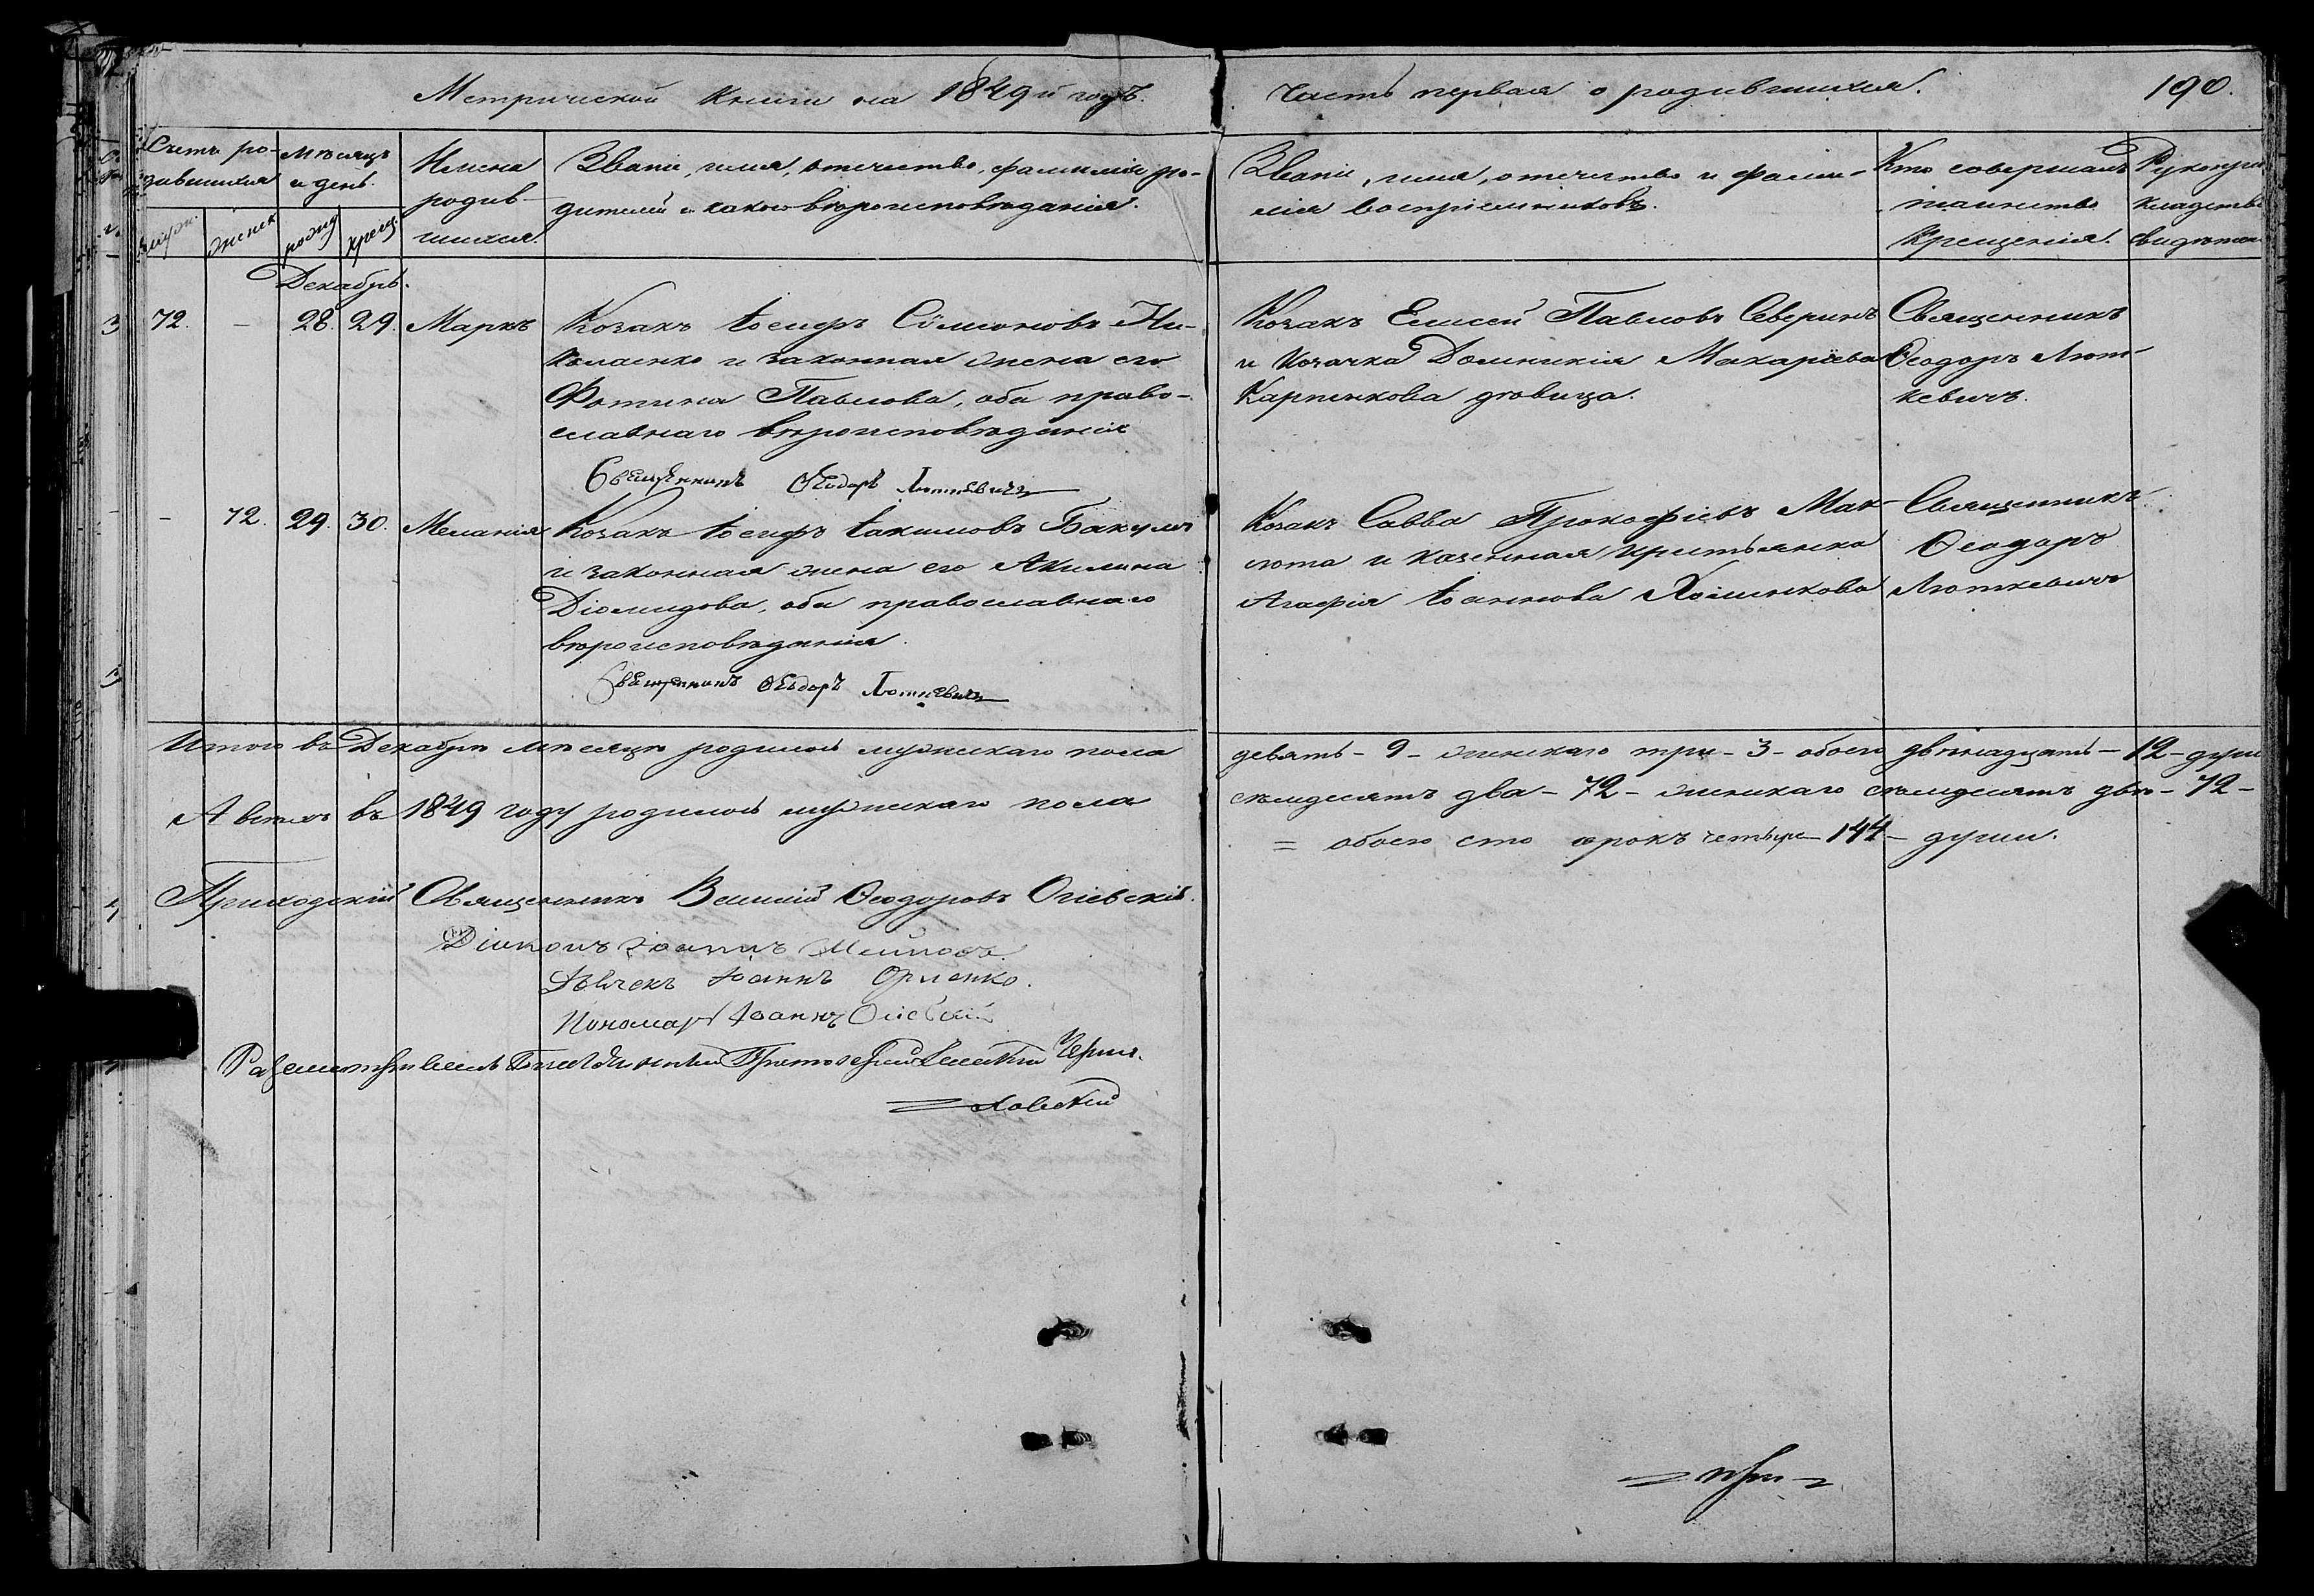 Метрической книги на 1849й годъ.
Часть первая о родившихся.
190.
Счетъ ро-
дившихся
Мѣсяцъ
и день.
Имена
родив-
шихся.
Званіе, имя, отечество, фамилія ро-
дителей и какого вѣроисповѣданія.
Званіе, имя, отечество и фами-
лія воспріемниковъ.
Кто совершалъ
таинство
крещенія.
Рукопри
кладство
свидѣтел
женск
рожд
крещ
Декабрь.
72. - 28. 29. Маркъ
Козакъ Іосифъ Сѵмеоновъ Ни-
колаенко и законная жена его
Фотинія Павлова, оба право-
славнаго вѣроисповѣданія
Священникъ Ѳеодоръ Люткевичъ
Козакъ Елисей Павловъ Северинъ
и козачка Домникія Макаріева
Карпенкова дѣвица.
Священникъ
Ѳеодоръ Лют-
кевичъ.
- 72. 29. 30. Меланія
Козакъ Іосифъ Іакимовъ Бакумъ
и законная жена его Акилина
Діомидова, оба православнаго
вѣроисповѣданія.
Священникъ Ѳеодоръ Люткевичъ
Козакъ Савва Прокофіевъ Мак-
лота и казенная крестьянка
Агафія Іоаннова Хоменкова
Священникъ
Ѳеодоръ
Люткевичъ
Итого въ Декабрѣ мѣсяцѣ родилось мужескаго пола
девять - 9 - женскаго три - 3 - обоего двѣнадцать - 12 - душ
А всѣхъ въ 1849 году родилось мужескаго пола
семьдесятъ два - 72 - женскаго семьдесятъ двѣ - 72 -
= обоего сто сорокъ четыре 144 - души.
Приходскій Священникъ Василій Ѳеодоровъ Огіевскій.
Діаконъ Іоаннъ
Дьячекъ Іоаннъ Орленко.
Пономарь Іоаннъ Огіевскій
Разсматривалъ Благочинный Протоіерей Черня-
ховскій